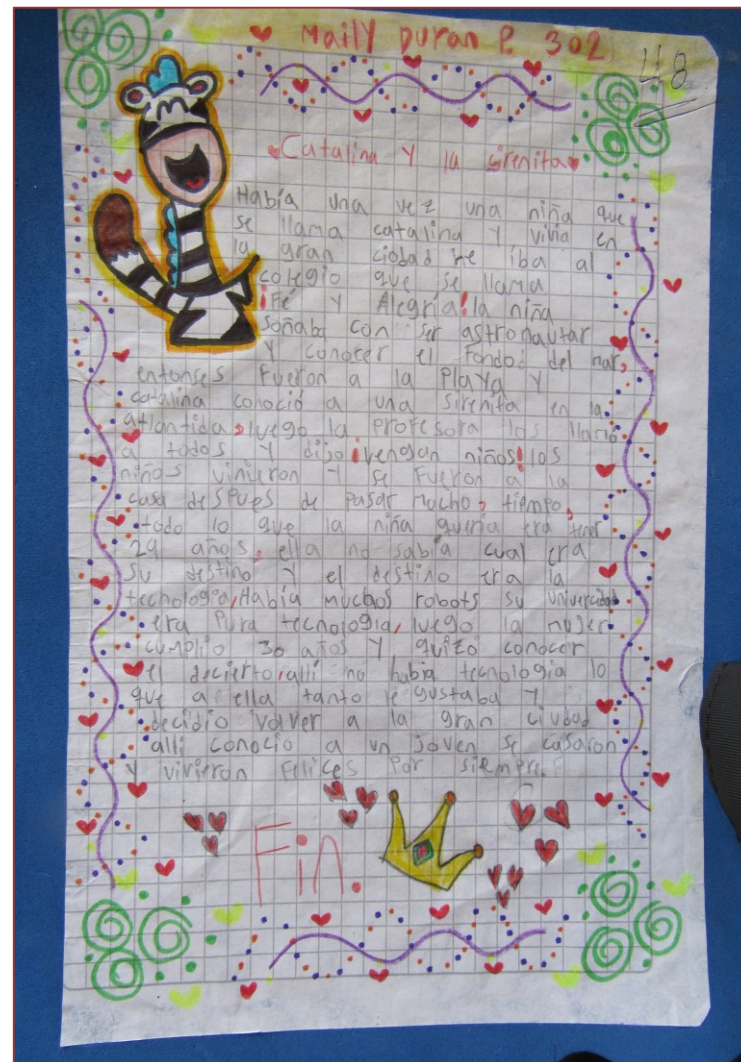 Maily Duran P. 302
48
Catalina Y la sirenita
Había una vez una niña que
se llama catalina Y vivia en
la gran ciodad se iba al
colegio que se llama
¡Fé Y Alegría! la niña
soñaba con ser astronautar
Y conocer el fondo del mar,
entonses Fueron a la PlaYa Y
catalina conoció a una sirenita en la
atlantida, luego la profesora los llamó
a todos Y dijo ¡vengan niños! los
niños vinieron Y se Fueron a la
casa despues de pasar mucho, tiempo,
todo lo que la niña queria era tener
29 años, ella no sabía cual era
su destino Y el destino era la
technologia, Había muchos robots su univercidad
era pura tecnologia, luego la mujer
cumplio 30 años Y quizo conocer
el decierto, allí no habia tecnologia lo
que a ella tanto le gustaba Y
decidio volver a la gran ciudad
alli conocio a un joven se casaron
Y vivieron Felices por siempre.
Fin.